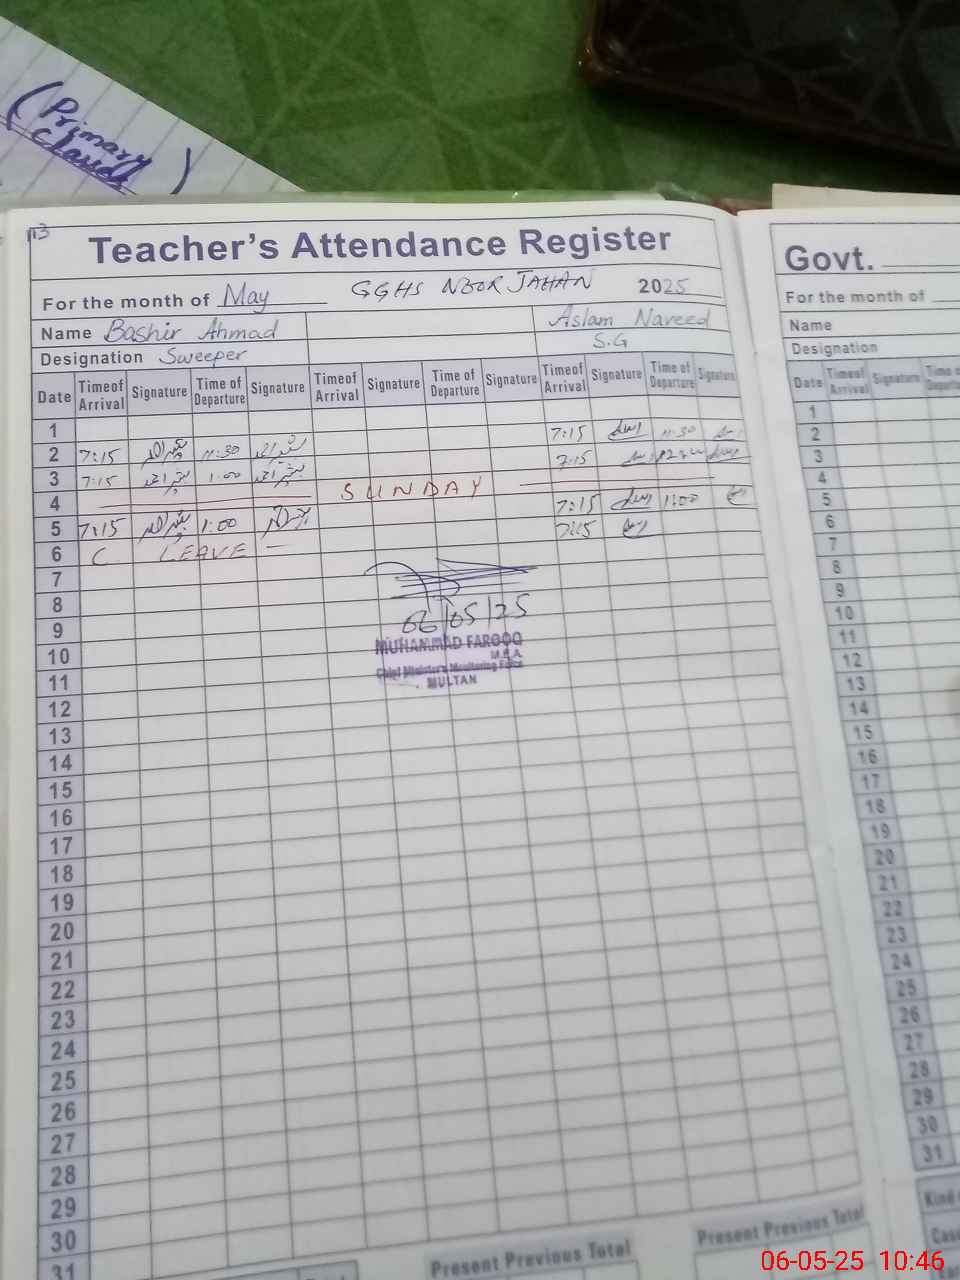 (Primary
113
Teacher's Attendance Register
For the month of May GGHS NOOR JAHAN 2025
Name Bashir Ahmad Aslam Naveed
Designation Sweeper S.G
Date Timeof Arrival Signature Time of Departure Signature Timeof Arrival Signature Time of Departure Signature Timeof Arrival Signature Time of Departure Signature
1
2 7:15 بشیر احمد 11:30 بشیر احمد 7:15 11:30
3 7:15 بشیر احمد 1:00 بشیر احمد 7:15
4 SUNDAY
5 7:15 بشیر احمد 1:00 بشیر احمد 7:15 1:00
6 C LEAVE — 7:15
7
8
9
06/05/25
10
MUHAMMAD FAROOQ
M.E.A.
11
Chief Minister's Monitoring Force
MULTAN
12
13
14
15
16
17
18
19
20
21
22
23
24
25
26
27
28
29
30
31
Present Previous Total Present Previous Total
Govt.
For the month of
Name
Designation
Date Timeof Arrival Signature Time of
1
2
3
4
5
6
7
8
9
10
11
12
13
14
15
16
17
18
19
20
21
22
23
24
25
26
27
28
29
30
31
Kind
06-05-25 10:46